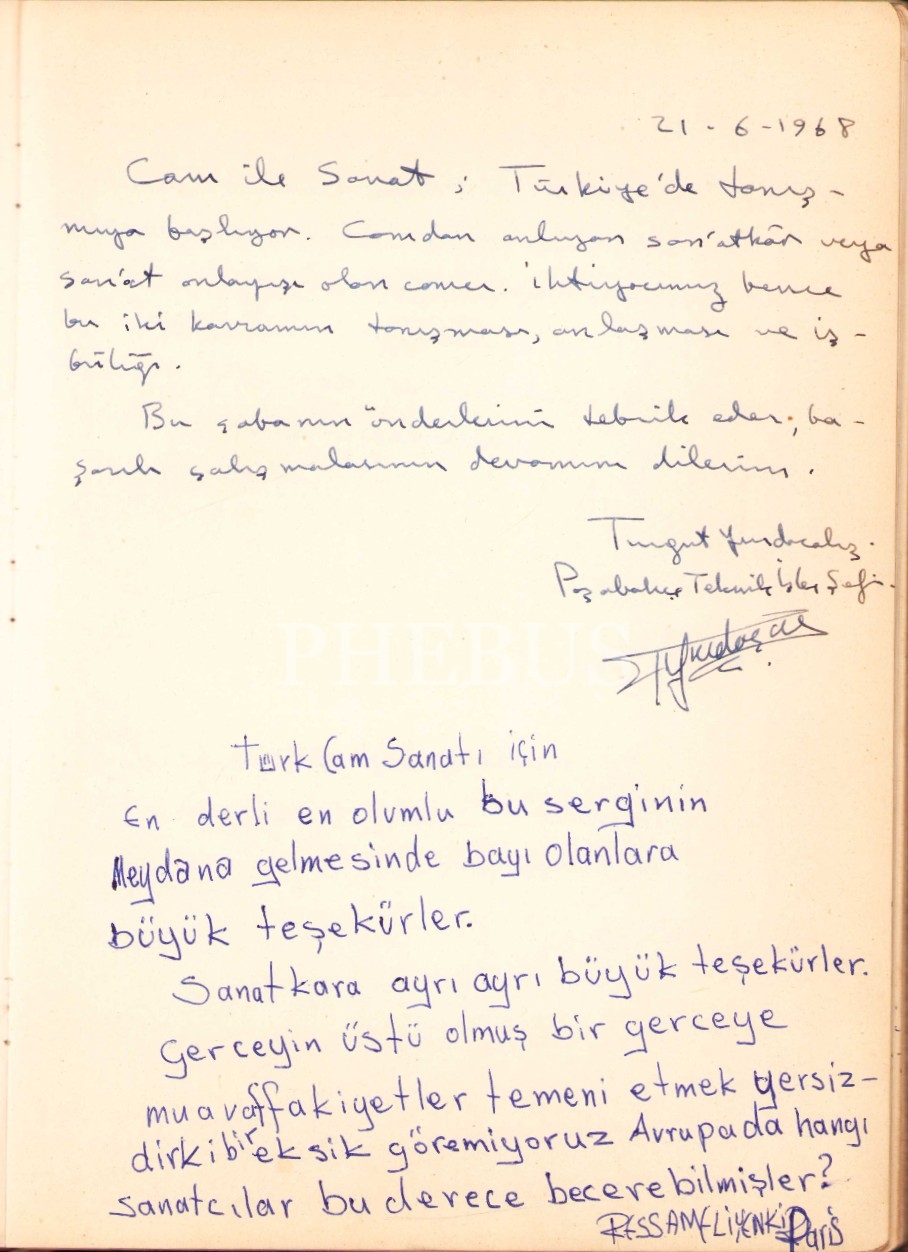 21-6-1968
Cam ile Sanat; Türkiye'de tanış-
maya başlıyor. Camdan anlayan san'atkâr veya
san'at anlayışı olan camcı. İhtiyacımız bence
bu iki kavramın tanışması, anlaşması ve iş-
birliği.
Bu çabanın önderlerini tebrik eder, ba-
şarılı çalışmalarının devamını dilerim.
Turgut
Paşabahçe Teknik İşler Şefi.
PHEBUS
Türk Cam Sanatı için
En derli en olumlu bu serginin
Meydana gelmesinde bayı olanlara
büyük teşekürler.
Sanatkara ayrı ayrı büyük teşekürler.
Gerceyin üstü olmuş bir gerceye
muavaffakiyetler temeni etmek yersiz-
dirki bir eksik göremiyoruz Avrupada hangı
sanatcılar bu derece becerebilmişler?
RESSAM Paris